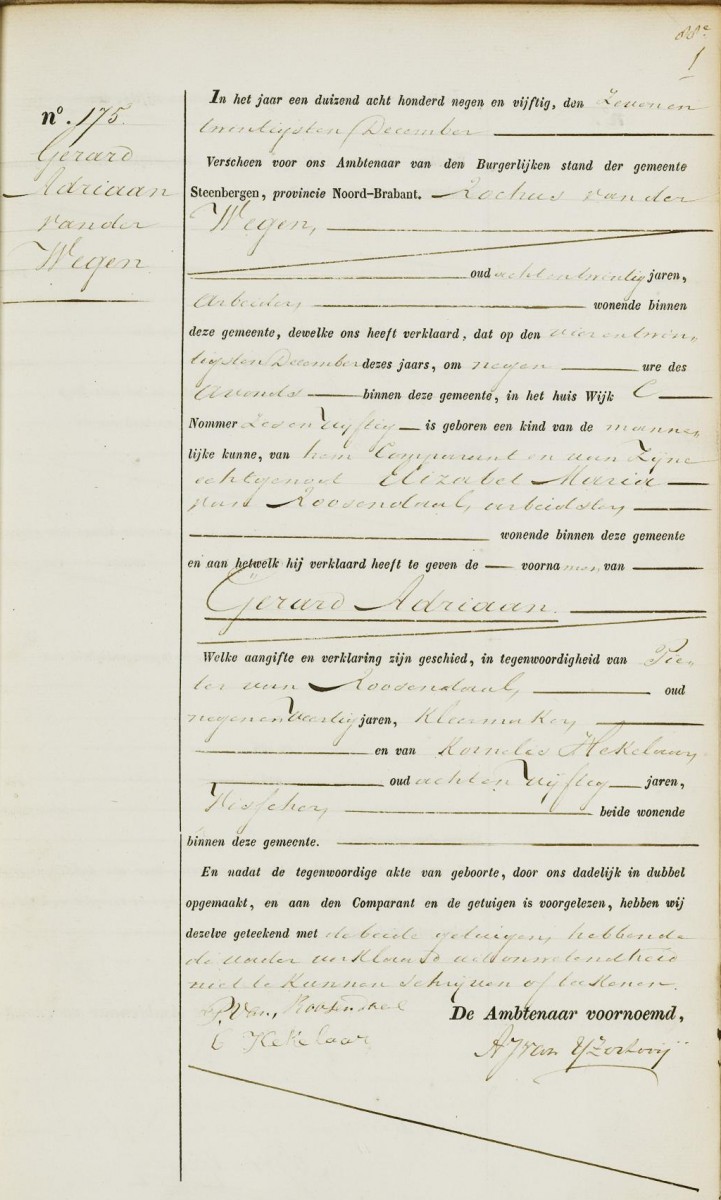 88e
1
No. 175.
Gerard
Adriaan
van der
Wegen
In het jaar een duizend acht honderd negen en vijftig, den Zevenen
twintigsten December
Verscheen voor ons Ambtenaar van den Burgerlijken stand der gemeente
Steenbergen, provincie Noord-Brabant. Rochus van der
Wegen,
oud achtentwintig jaren,
arbeider, wonende binnen
deze gemeente, dewelke ons heeft verklaard, dat op den vierentwin„
tigsten December dezes jaars, om negen ure des
avonds binnen deze gemeente, in het huis Wijk C
Nommer Zesenvijftig is geboren een kind van de manne„
lijke kunne, van hem Comparant en van Zijne
echtgenoot Elizabet Maria
van Roosendaal, arbeidster,
wonende binnen deze gemeente
en aan hetwelk hij verklaard heeft te geven de voornamen van
Gerard Adriaan.
Welke aangifte en verklaring zijn geschied, in tegenwoordigheid van Pie„
ter van Roosendaal, oud
negenenveertig jaren, Kleermaker,
en van Kornelis Hekelaar,
oud achtenvijftig jaren,
Visscher, beide wonende
binnen deze gemeente.
En nadat de tegenwoordige akte van geboorte, door ons dadelijk in dubbel
opgemaakt, en aan den Comparant en de getuigen is voorgelezen, hebben wij
dezelve geteekend met de beide getuigen, hebbende
de vader verklaard uit onwetendheid
niet te Kunnen schrijven of teekenen.
P. van, Roosendaal
C Hekelaar
De Ambtenaar voornoemd,